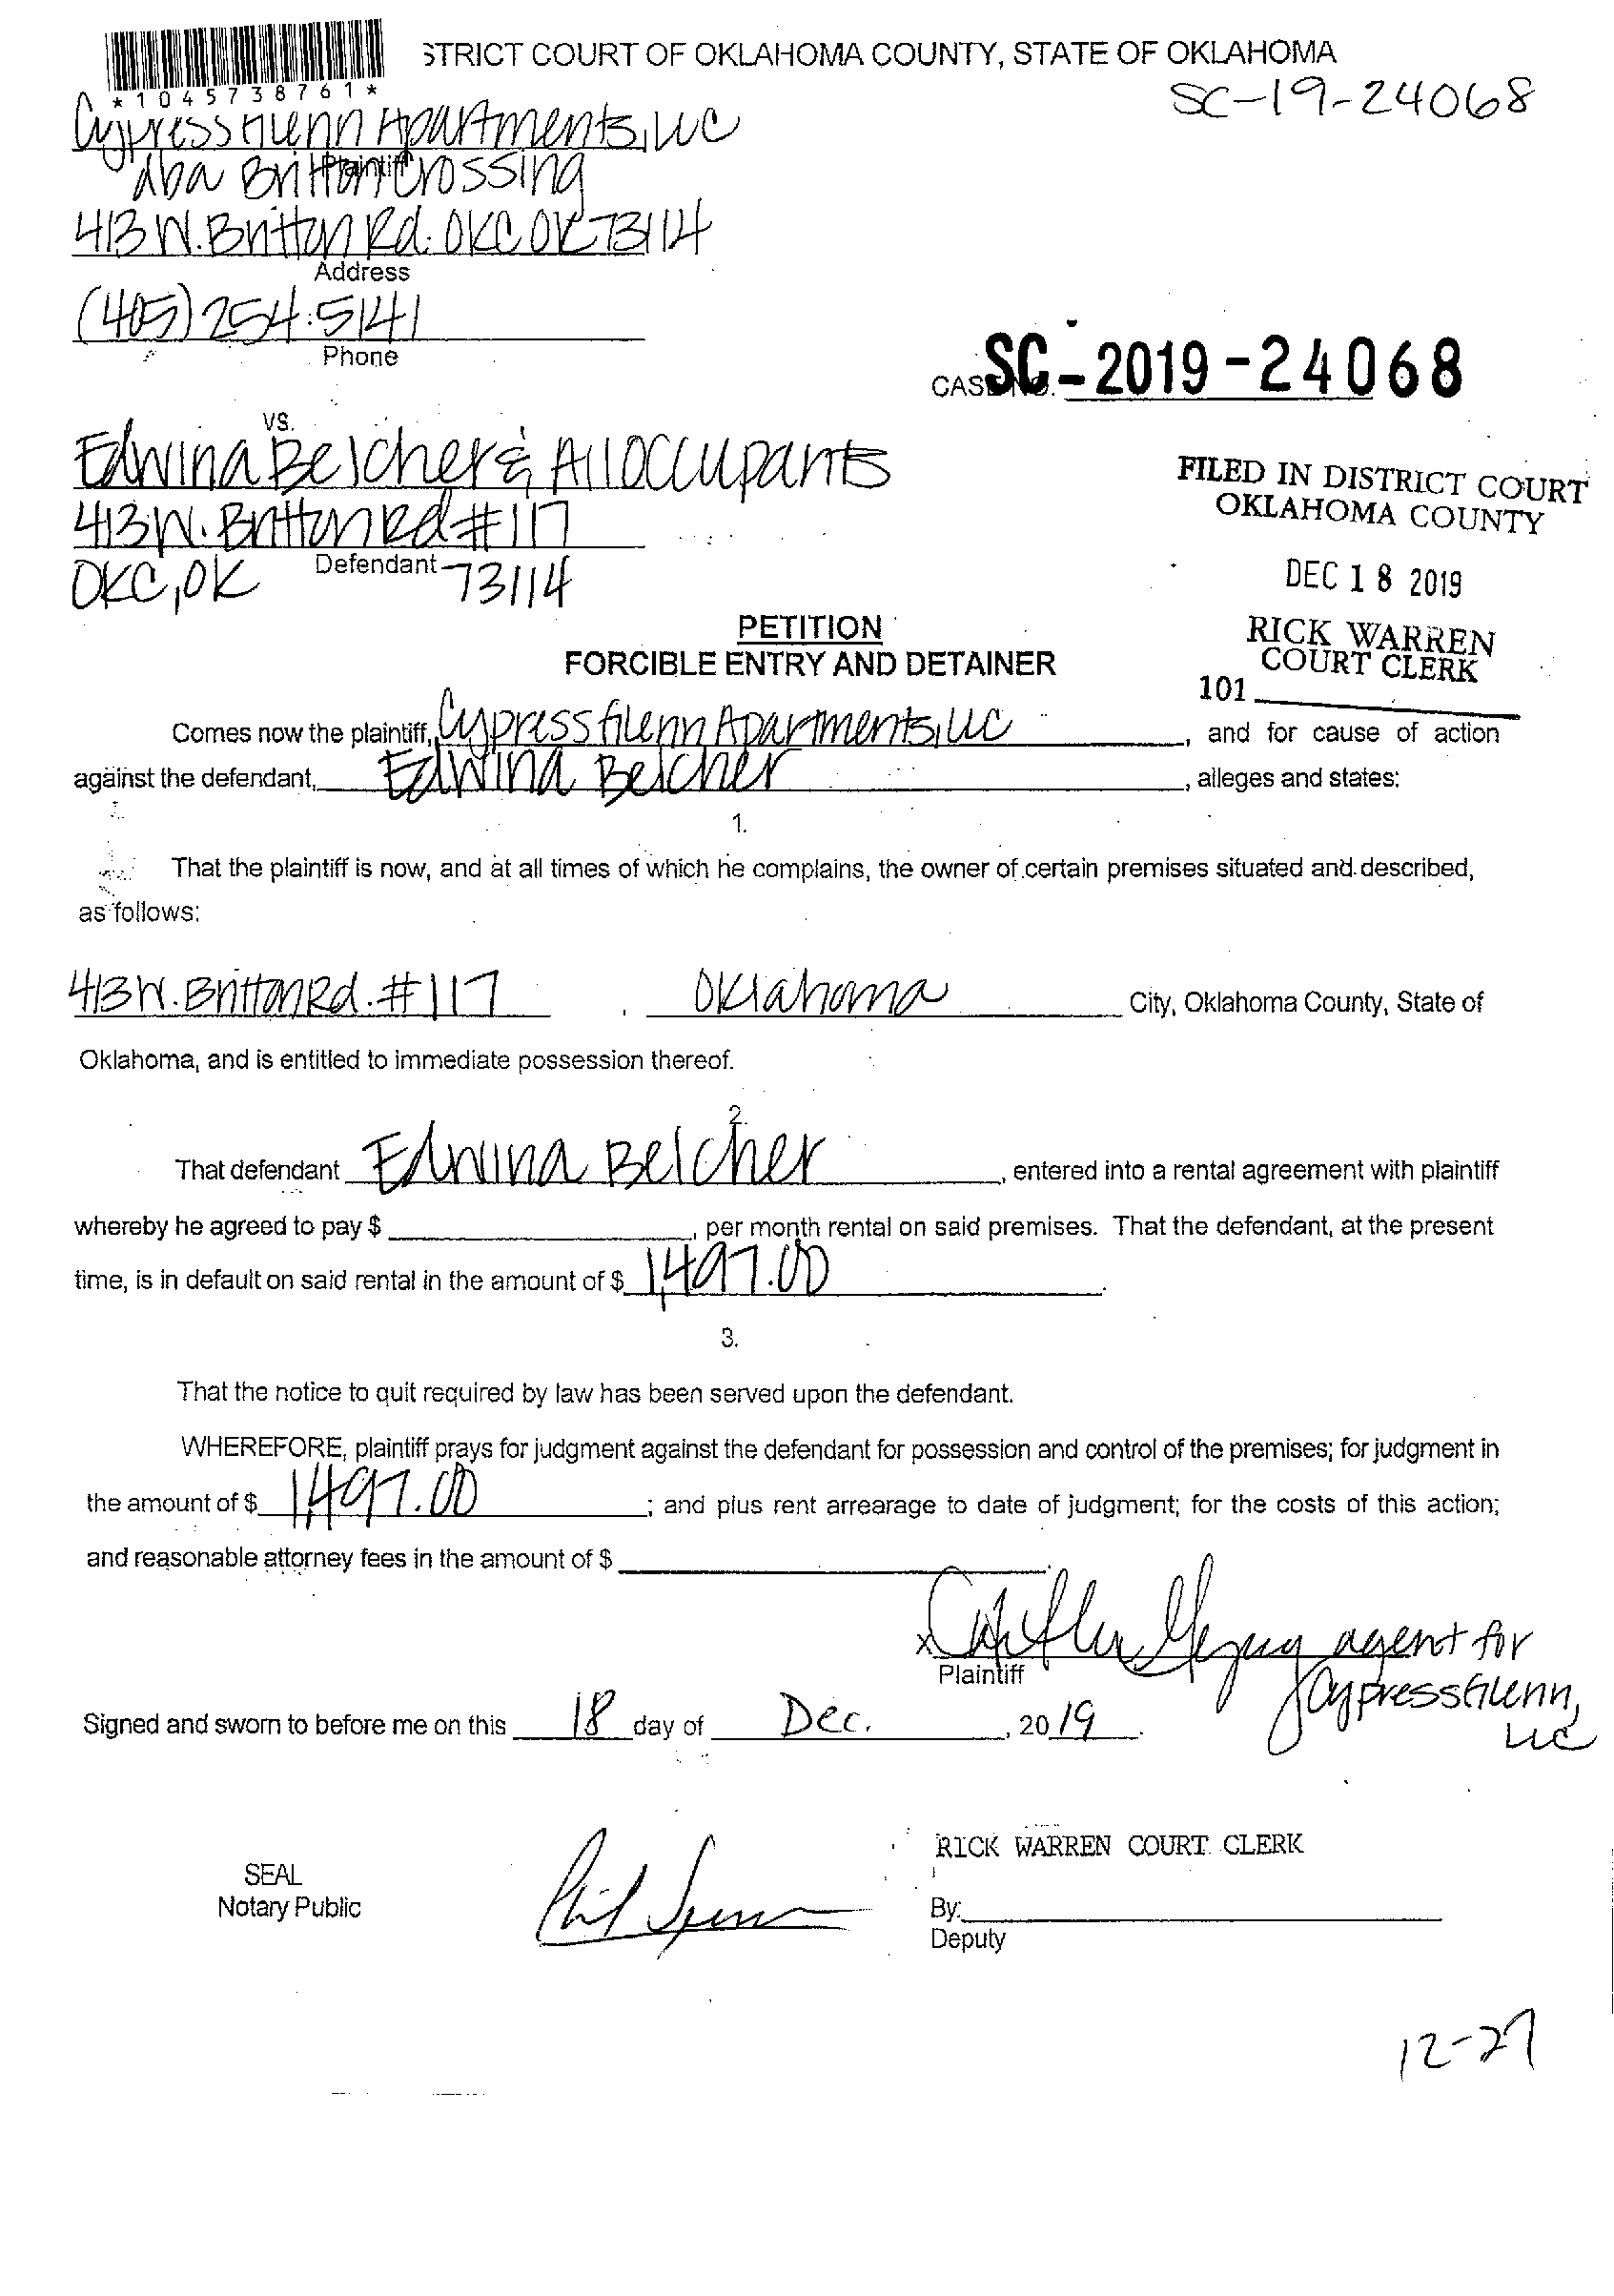 STRICT COURT OF OKLAHOMA COUNTY, STATE OF OKLAHOMA
*1045738761*
SC-19-24068
Cypress Glenn Apartments, LLC
dba Britton Crossing
Plaintiff
413 W. Britton Rd. OKC OK 73114
Address
(405) 254-5141
Phone
CASE NO. SC-2019-24068
vs.
Edwina Belcher & All Occupants
413 W. Britton Rd #117
Defendant
OKC, OK 73114
FILED IN DISTRICT COURT
OKLAHOMA COUNTY
DEC 18 2019
RICK WARREN
COURT CLERK
101
PETITION
FORCIBLE ENTRY AND DETAINER
Comes now the plaintiff, Cypress Glenn Apartments, LLC, and for cause of action
against the defendant, Edwina Belcher, alleges and states:
1.
That the plaintiff is now, and at all times of which he complains, the owner of certain premises situated and described,
as follows:
413 W. Britton Rd. #117, Oklahoma City, Oklahoma County, State of
Oklahoma, and is entitled to immediate possession thereof.
2.
That defendant Edwina Belcher, entered into a rental agreement with plaintiff
whereby he agreed to pay $, per month rental on said premises. That the defendant, at the present
time, is in default on said rental in the amount of $ 1,497.00.
3.
That the notice to quit required by law has been served upon the defendant.
WHEREFORE, plaintiff prays for judgment against the defendant for possession and control of the premises; for judgment in
the amount of $ 1,497.00; and plus rent arrearage to date of judgment; for the costs of this action;
and reasonable attorney fees in the amount of $.
x agent for
Plaintiff
Cypress Glenn,
LLC
Signed and sworn to before me on this 18 day of Dec., 2019.
RICK WARREN COURT CLERK
SEAL
Notary Public
By:
Deputy
12-27